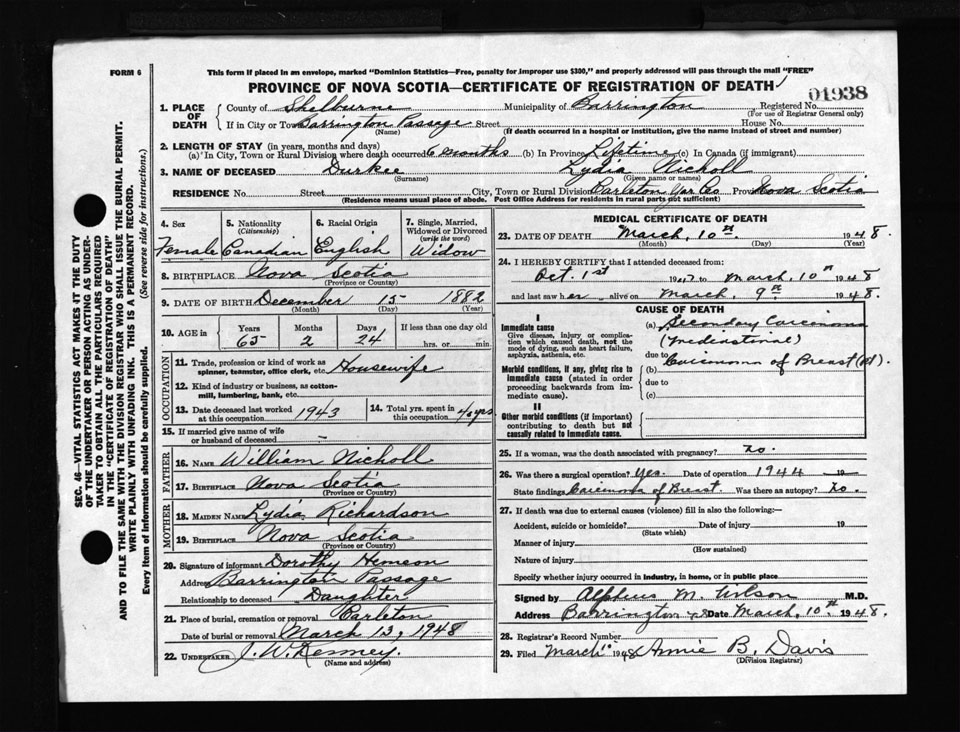 FORM 6
This form if placed in an envelope, marked "Dominion Statistics—Free, penalty for improper use $300," and properly addressed will pass through the mail "FREE"
PROVINCE OF NOVA SCOTIA—CERTIFICATE OF REGISTRATION OF DEATH
01938
1. PLACE OF DEATH
County of Shelburne Municipality of Barrington Registered No.
(For use of Registrar General only)
If in City or Town Barrington Passage Street House No.
(Name) (If death occurred in a hospital or institution, give the name instead of street and number)
2. LENGTH OF STAY (in years, months and days)
(a) In City, Town or Rural Division where death occurred 6 months (b) In Province Lifetime (c) In Canada (if immigrant)
3. NAME OF DECEASED Durkee Lydia Nicholl
(Surname) (Given name or names)
RESIDENCE No. Street City, Town or Rural Division Carleton Yar Co Province Nova Scotia
(Residence means usual place of abode. Post Office Address for residents in rural parts not sufficient)
4. Sex
Female
5. Nationality
(Citizenship)
Canadian
6. Racial Origin
English
7. Single, Married, Widowed or Divorced
(write the word)
Widow
8. BIRTHPLACE Nova Scotia
(Province or Country)
9. DATE OF BIRTH December 15 1882
(Month) (Day) (Year)
10. AGE in
Years Months Days If less than one day old
65 2 24 hrs. or min.
OCCUPATION
11. Trade, profession or kind of work as
spinner, teamster, office clerk, etc. Housewife
12. Kind of industry or business, as cotton-
mill, lumbering, bank, etc.
13. Date deceased last worked
at this occupation 1943
14. Total yrs. spent in
this occupation 40 yrs
15. If married give name of wife
or husband of deceased –
FATHER
16. NAME William Nicholl
17. BIRTHPLACE Nova Scotia
(Province or Country)
MOTHER
18. MAIDEN NAME Lydia Richardson
19. BIRTHPLACE Nova Scotia
(Province or Country)
20. Signature of informant Dorothy Hemeon
Address Barrington Passage
Relationship to deceased Daughter
21. Place of burial, cremation or removal Carleton
Date of burial or removal March 13, 1948
22. UNDERTAKER J. W. Kenney.
(Name and address)
MEDICAL CERTIFICATE OF DEATH
23. DATE OF DEATH March, 10th. 1948.
(Month) (Day) (Year)
24. I HEREBY CERTIFY that I attended deceased from:
Oct. 1st 1947 to March, 10th 1948
and last saw her alive on March, 9th 1948.
CAUSE OF DEATH
I
Immediate cause
Give disease, injury or complica-
tion which caused death, not the
mode of dying, such as heart failure,
asphyxia, asthenia, etc.
Morbid conditions, if any, giving rise to
immediate cause (stated in order
proceeding backwards from im-
mediate cause).
II
Other morbid conditions (if important)
contributing to death but not
causally related to immediate cause.
(a) Secondary Carcinoma
(Mediastinal)
due to
(b) Carcinoma of Breast
due to
(c)
25. If a woman, was the death associated with pregnancy? No.
26. Was there a surgical operation? Yes. Date of operation 1944 19
State findings Carcinoma of Breast. Was there an autopsy? No.
27. If death was due to external causes (violence) fill in also the following:—
Accident, suicide or homicide? Date of injury 19
(State which)
Manner of injury
(How sustained)
Nature of injury
Specify whether injury occurred in industry, in home, or in public place
Signed by Alphius M. Wilson M.D.
Address Barrington Date March, 10th 1948.
28. Registrar's Record Number
29. Filed March 1948 Annie B. Davis
(Division Registrar)
SEC. 46—VITAL STATISTICS ACT MAKES IT THE DUTY
OF THE UNDERTAKER OR PERSON ACTING AS UNDER-
TAKER TO OBTAIN ALL THE PARTICULARS REQUIRED
IN THE "CERTIFICATE OF REGISTRATION OF DEATH"
AND TO FILE THE SAME WITH THE DIVISION REGISTRAR WHO SHALL ISSUE THE BURIAL PERMIT.
WRITE PLAINLY WITH UNFADING INK. THIS IS A PERMANENT RECORD.
Every item of information should be carefully supplied. (See reverse side for instructions.)